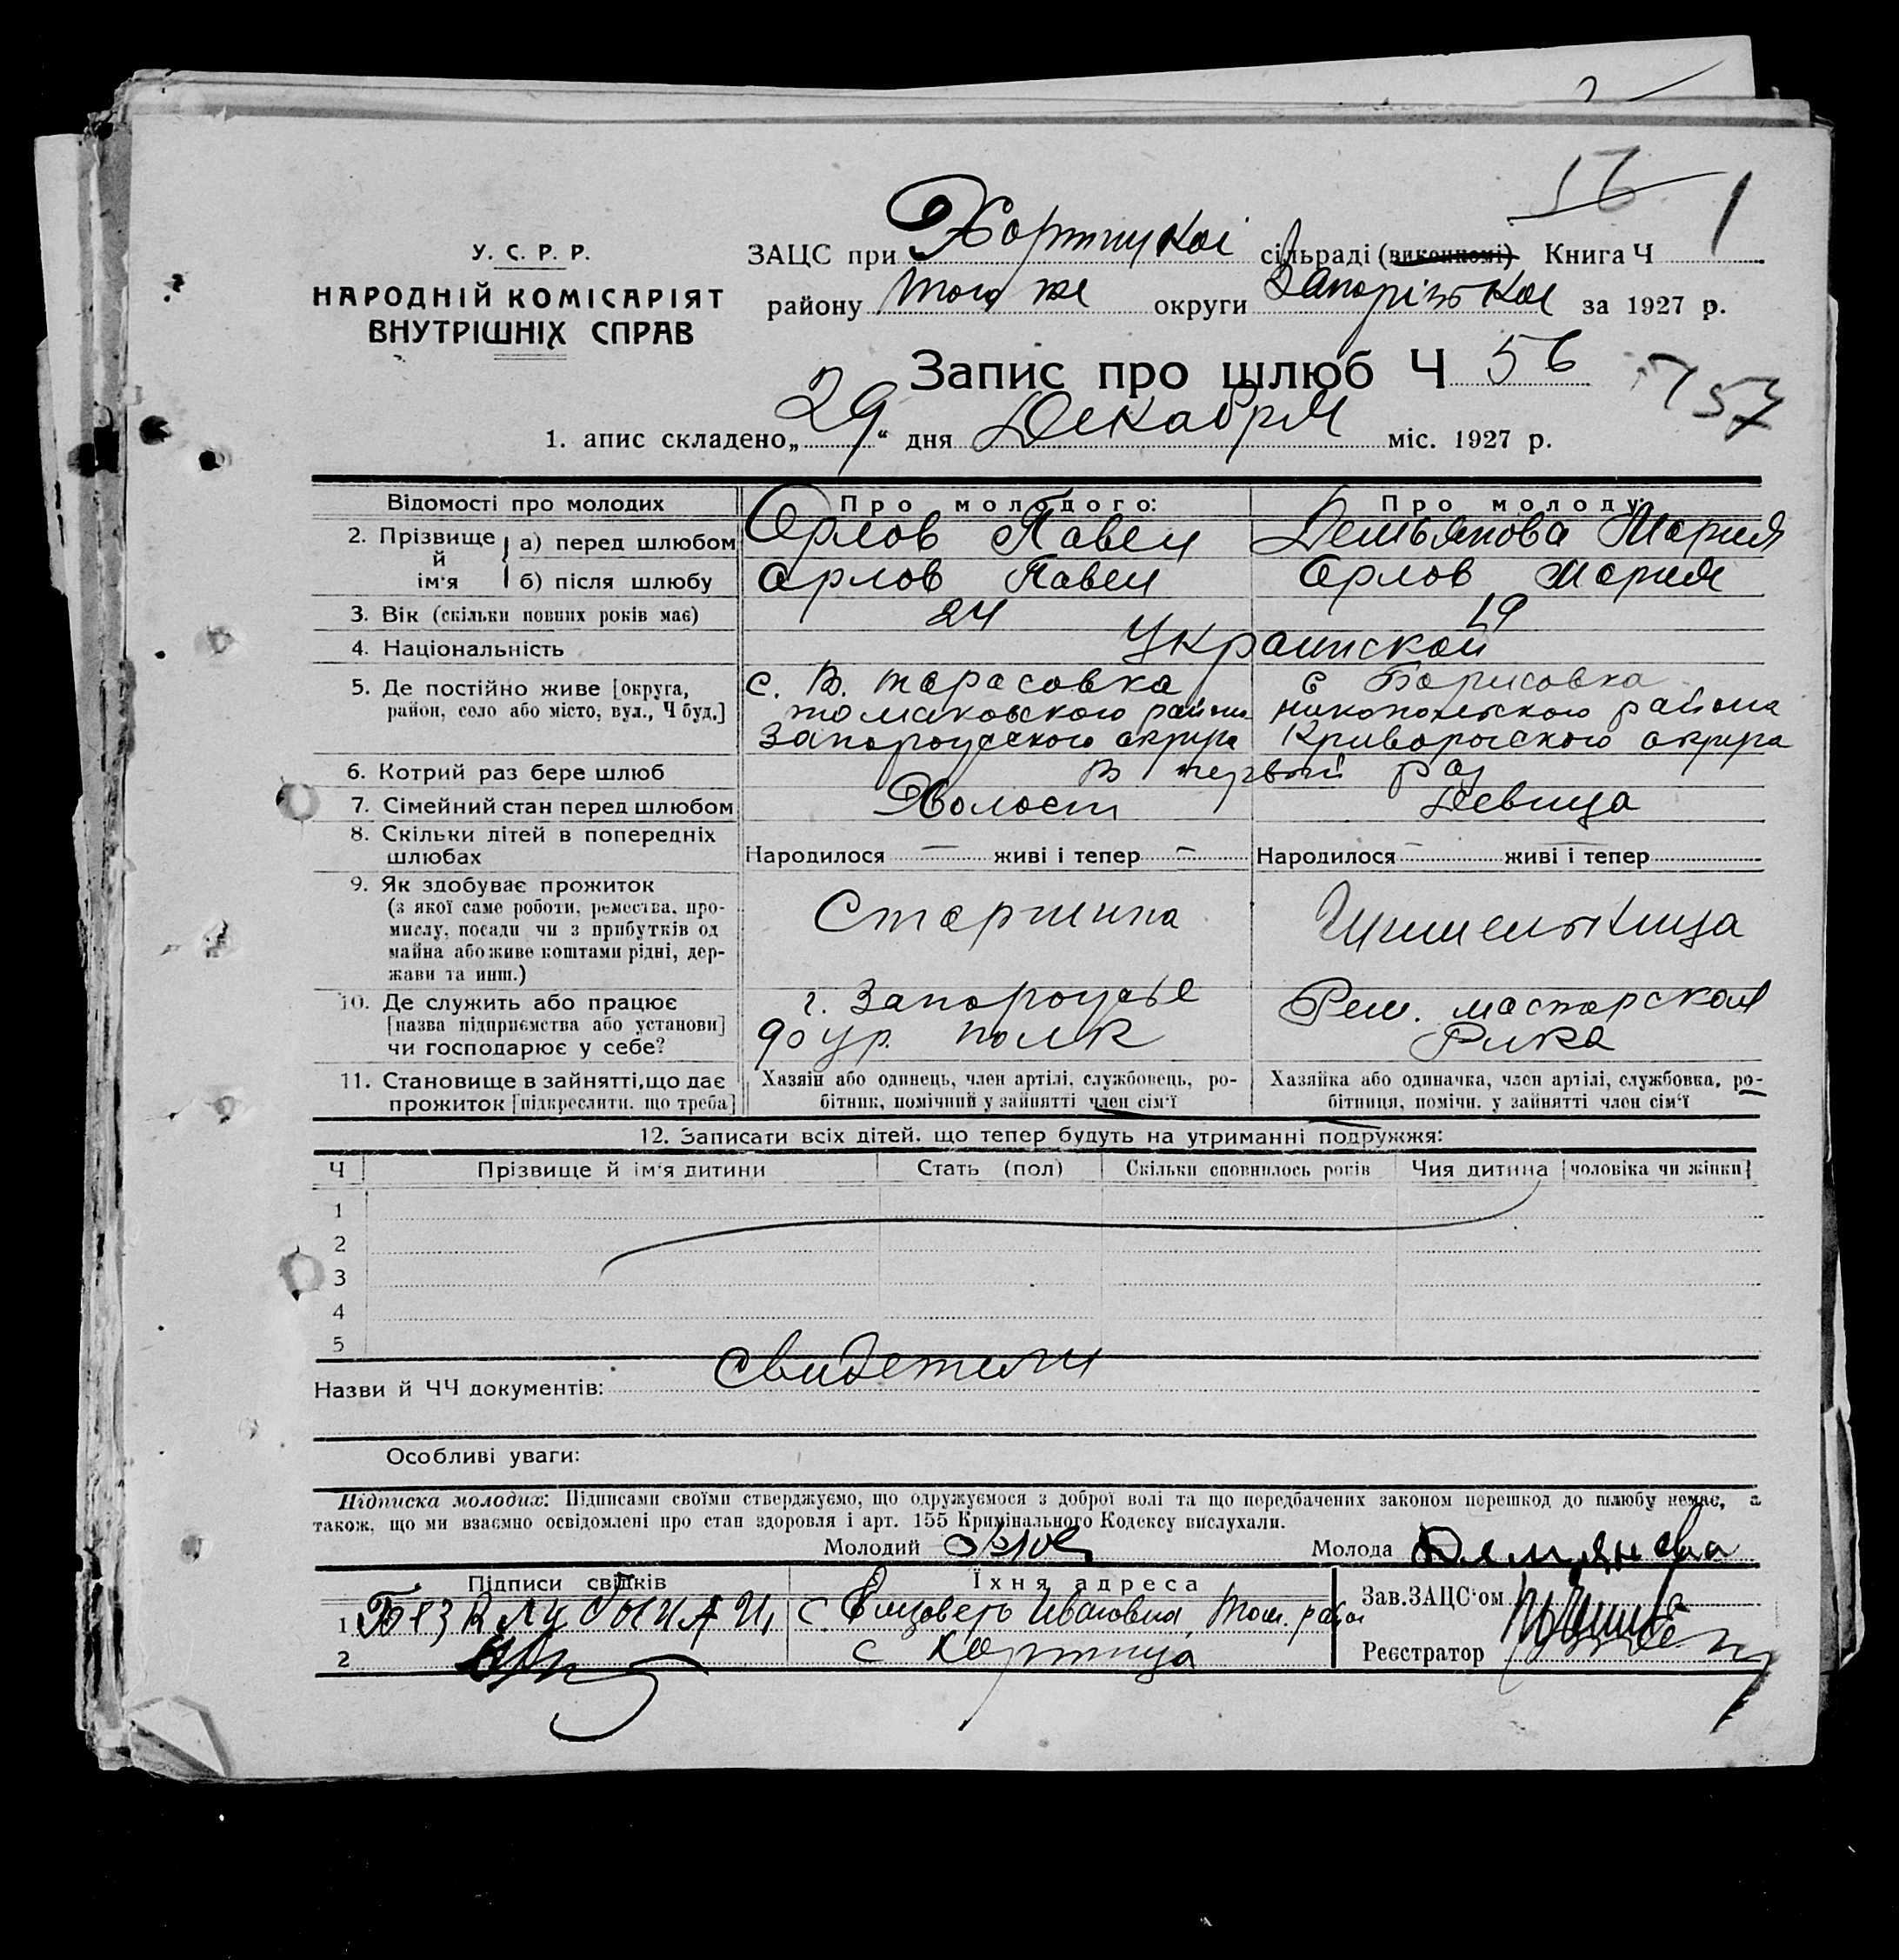 56 1
У. С. Р. Р.
НАРОДНІЙ КОМІСАРІЯТ
ВНУТРІШНІХ СПРАВ
ЗАЦС при Хортицкоі сільраді (виконкомі) Книга Ч
району того же округи Запорізькое за 1927 р.
Запис про шлюб Ч 56 57
1. апис складено „29“ дня Декабря міс. 1927 р.
Відомості про молодих Про молодого: Про молоду:
2. Прізвище й ім‘я а) перед шлюбом Орлов Павел Демьянова Мария
б) після шлюбу Орлов Павел Орлов Мария
3. Вік (скільки повних років має) 24 19
4. Національність Украинской
5. Де постійно живе [округа, район, село або місто, вул., Ч буд.]
с. В. Тарасовка томаковского района Запорожского округа
с Борисовка никопольского района Криворожского округа
6. Котрий раз бере шлюб В первый раз
7. Сімейний стан перед шлюбом Холост Девица
8. Скільки дітей в попередніх шлюбах Народилося — живі і тепер — Народилося — живі і тепер
9. Як здобуває прожиток
(з якої саме роботи, ремества, про-
мислу, посади чи з прибутків од
майна або живе коштами рідні, дер-
жави та инш.)
Старшина
10. Де служить або працює
[назва підприємства або установи]
чи господарює у себе?
г. Запорожье
90 ур. полк
мастерская
11. Становище в зайнятті, що дає
прожиток [підкреслити, що треба]
Хазяін або одинець, член артілі, службовець, ро-
бітник, помічний у зайнятті член сім‘ї
Хазяйка або одиначка, член артілі, службовка, ро-
бітниця, помічн. у зайнятті член сім‘ї
12. Записати всіх дітей, що тепер будуть на утриманні подружжя:
Ч Прізвище й ім‘я дитини Стать (пол) Скільки сповнилось років Чия дитина [чоловіка чи жінки]
1
2
3
4
5
Назви й ЧЧ документів: Свидетели
Особливі уваги:
Підписка молодих: Підписами своїми стверджуємо, що одружуємося з доброї волі та що передбачених законом перешкод до шлюбу немає, а
також, що ми взаємно освідомлені про стан здоровля і арт. 155 Кримінального Кодексу вислухали.
Молодий Молода Демянова
Підписи свідків Їхня адреса Зав. ЗАЦС‘ом
1
2 с Хортица Реєстратор